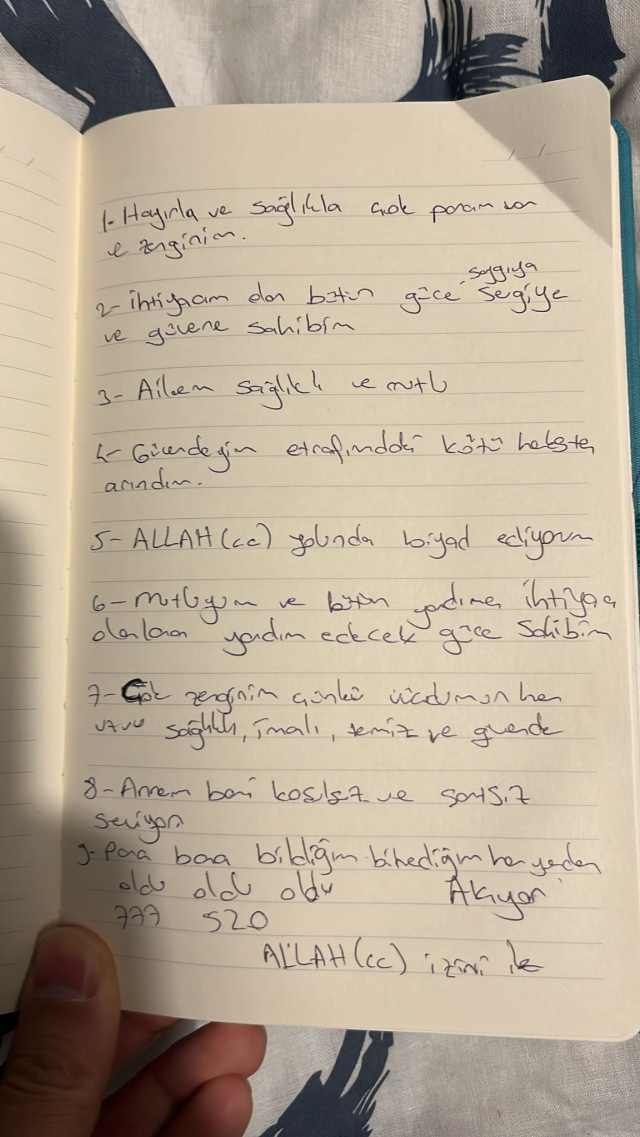 1- Hayırla ve sağlıkla çok param var
e zenginim.
saygıya
2- ihtiyacım olan bütün güce sevgiye
ve güvene sahibim
3- Ailem sağlıklı ve mutlu
4- etrafımdaki kötü
arındım.
5- ALLAH(cc) yolunda biyad ediyorum
6- mutluyum ve bütün yardıma ihtiyacı
olanlara yardım edecek güce Sahibim
7- Çok zenginim çünkü vücudumun her
uzvu sağlıklı, temiz ve güvende
8- Annem beni koşulsuz ve şartsız
seviyor
9- Para bana bildiğim bilmediğim her yerden
oldu oldu oldu Akıyor
777 520
ALLAH(cc) izini ile